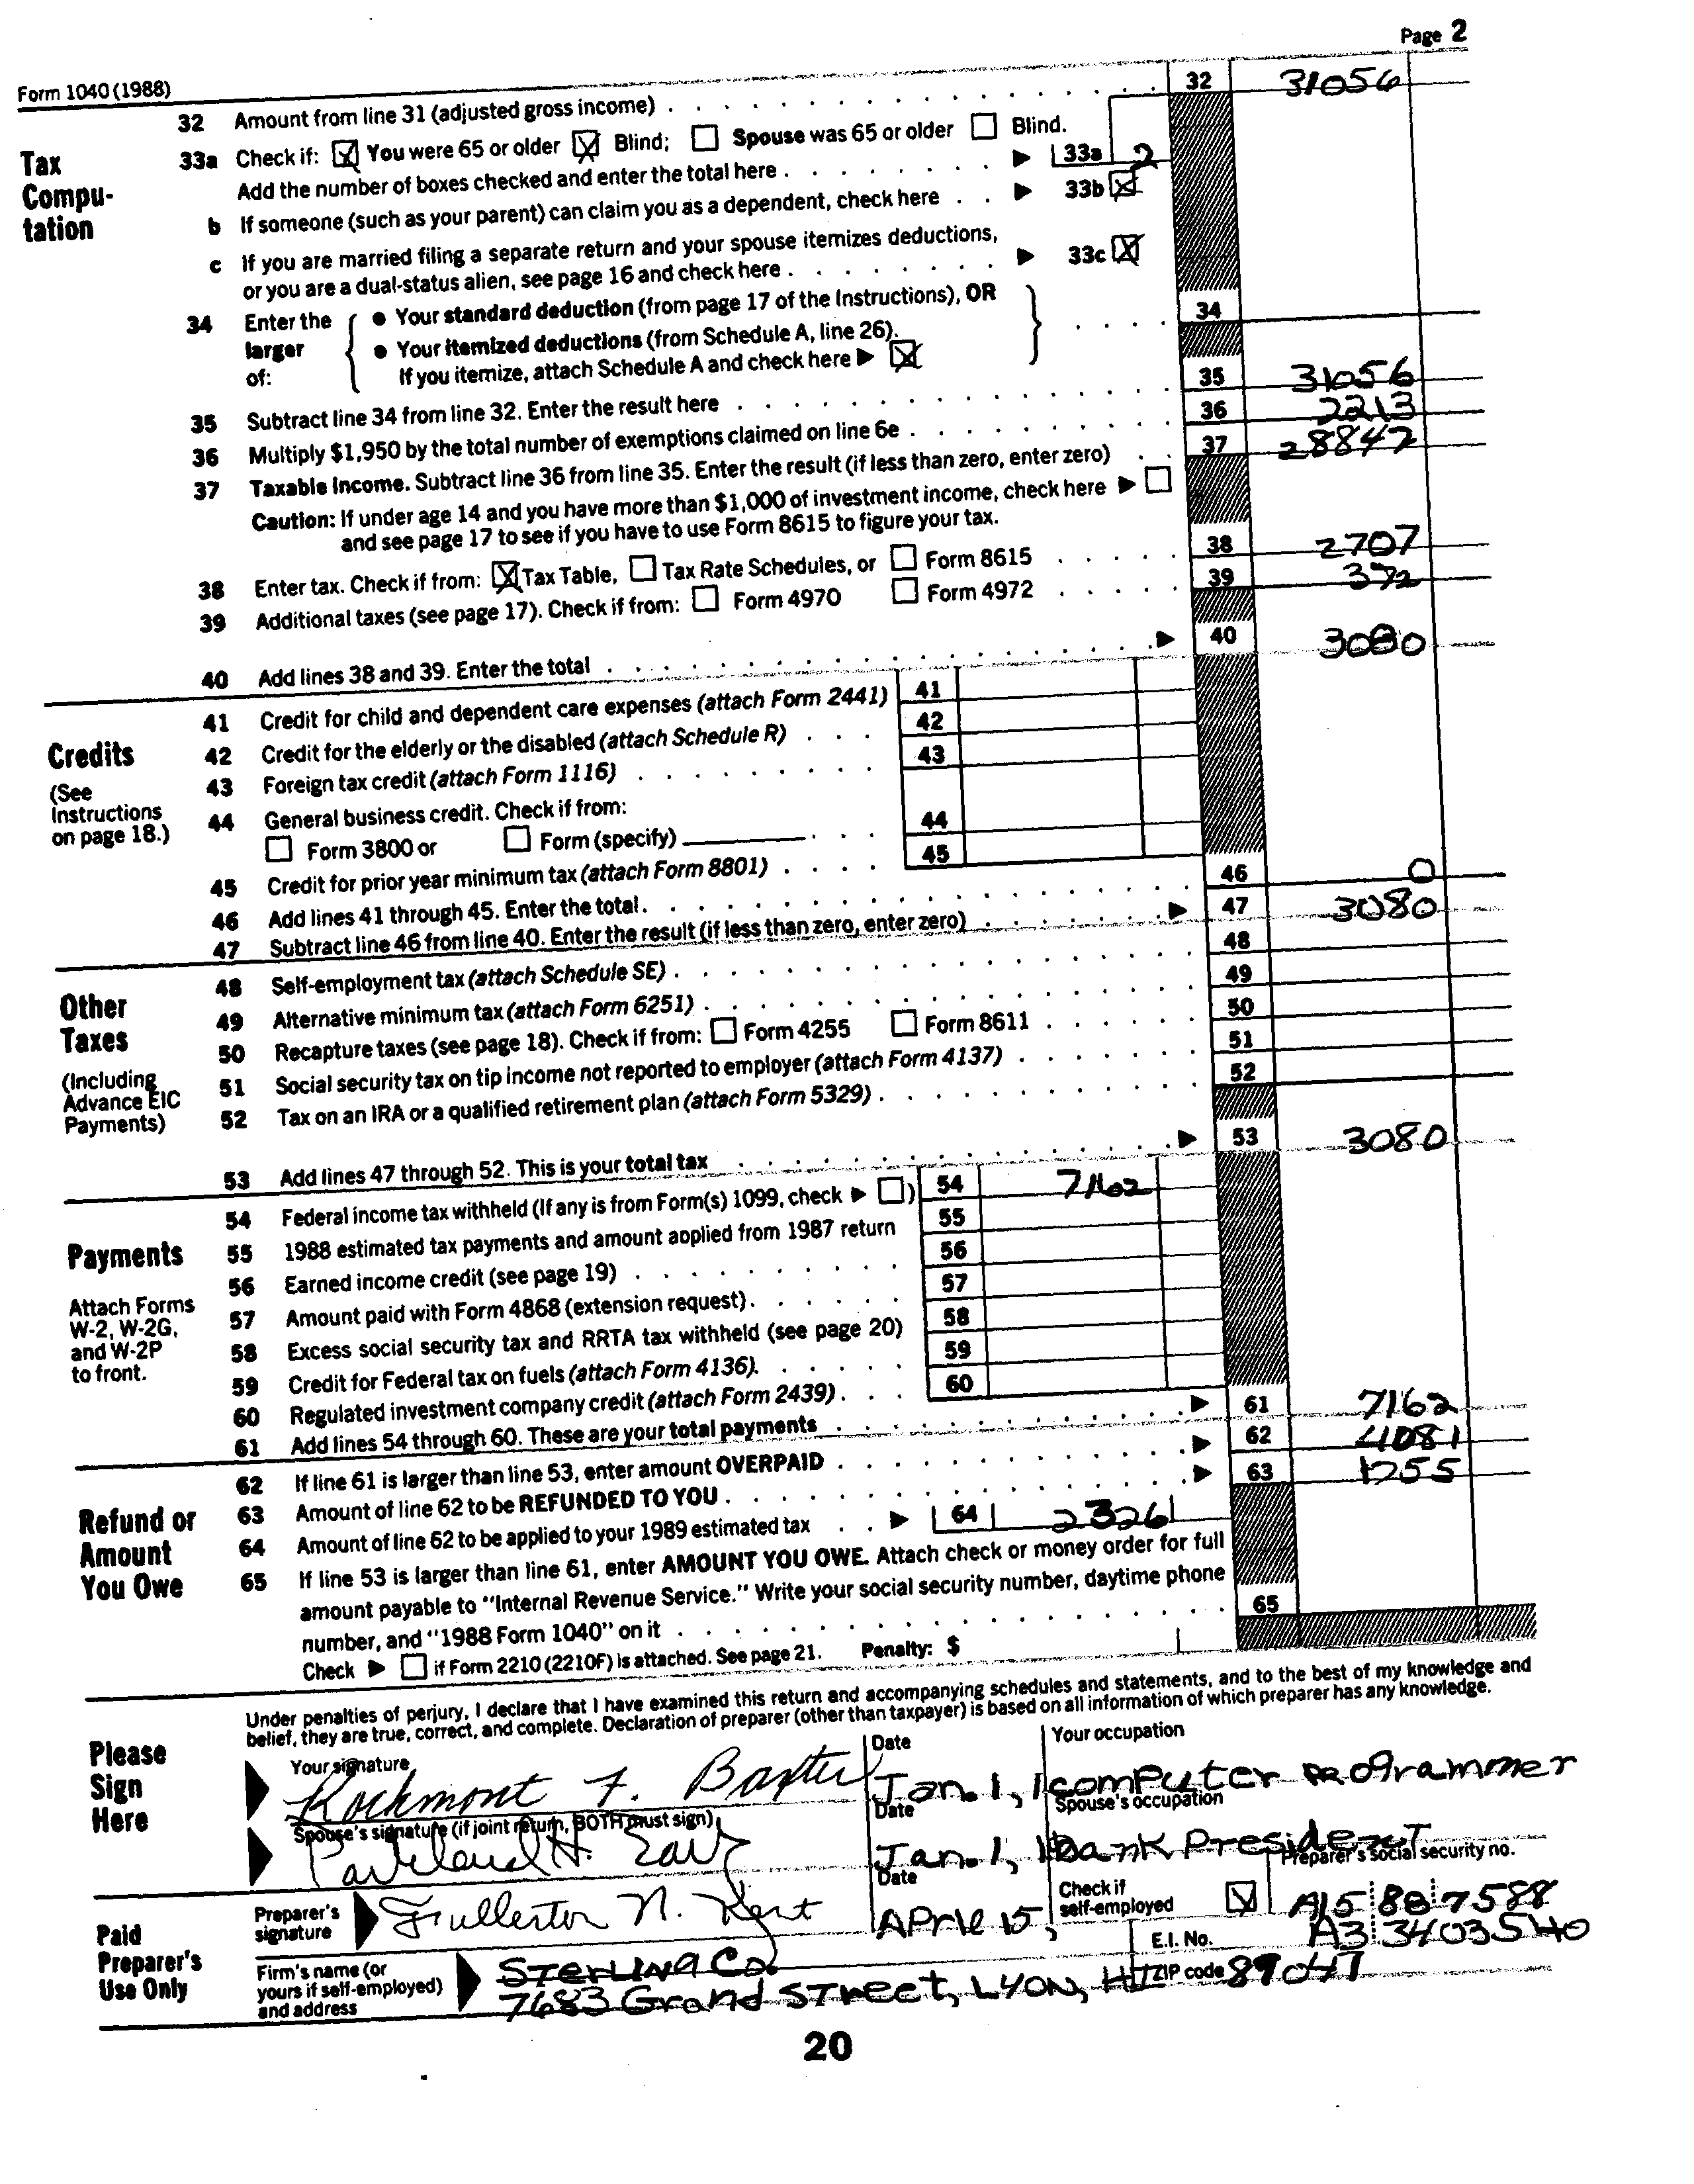 Page 2
Form 1040 (1988)
32 Amount from line 31 (adjusted gross income) 32 31056
Tax Compu-tation
33a Check if: You were 65 or older Blind; Spouse was 65 or older Blind.
Add the number of boxes checked and enter the total here 33a 2
b If someone (such as your parent) can claim you as a dependent, check here 33b
c If you are married filing a separate return and your spouse itemizes deductions,
or you are a dual-status alien, see page 16 and check here 33c
34 Enter the larger of: • Your standard deduction (from page 17 of the Instructions), OR 34
• Your itemized deductions (from Schedule A, line 26).
If you itemize, attach Schedule A and check here
35 Subtract line 34 from line 32. Enter the result here 35 31056
36 Multiply $1,950 by the total number of exemptions claimed on line 6e 36 2213
37 Taxable income. Subtract line 36 from line 35. Enter the result (if less than zero, enter zero) 37 28842
Caution: If under age 14 and you have more than $1,000 of investment income, check here
and see page 17 to see if you have to use Form 8615 to figure your tax.
38 Enter tax. Check if from: Tax Table, Tax Rate Schedules, or Form 8615 38 2707
39 Additional taxes (see page 17). Check if from: Form 4970 Form 4972 39 372
40 Add lines 38 and 39. Enter the total 40 3080
Credits
(See Instructions on page 18.)
41 Credit for child and dependent care expenses (attach Form 2441) 41
42 Credit for the elderly or the disabled (attach Schedule R) 42
43 Foreign tax credit (attach Form 1116) 43
44 General business credit. Check if from:
Form 3800 or Form (specify) 44
45 Credit for prior year minimum tax (attach Form 8801) 45
46 Add lines 41 through 45. Enter the total 46 0
47 Subtract line 46 from line 40. Enter the result (if less than zero, enter zero) 47 3080
Other Taxes
(Including Advance EIC Payments)
48 Self-employment tax (attach Schedule SE) 48
49 Alternative minimum tax (attach Form 6251) 49
50 Recapture taxes (see page 18). Check if from: Form 4255 Form 8611 50
51 Social security tax on tip income not reported to employer (attach Form 4137) 51
52 Tax on an IRA or a qualified retirement plan (attach Form 5329) 52
53 Add lines 47 through 52. This is your total tax 53 3080
Payments
Attach Forms W-2, W-2G, and W-2P to front.
54 Federal income tax withheld (If any is from Form(s) 1099, check ) 54 7162
55 1988 estimated tax payments and amount applied from 1987 return 55
56 Earned income credit (see page 19) 56
57 Amount paid with Form 4868 (extension request) 57
58 Excess social security tax and RRTA tax withheld (see page 20) 58
59 Credit for Federal tax on fuels (attach Form 4136). 59
60 Regulated investment company credit (attach Form 2439) 60
61 Add lines 54 through 60. These are your total payments 61 7162
Refund or Amount You Owe
62 If line 61 is larger than line 53, enter amount OVERPAID 62 4081
63 Amount of line 62 to be REFUNDED TO YOU 63 1755
64 Amount of line 62 to be applied to your 1989 estimated tax 64 2326
65 If line 53 is larger than line 61, enter AMOUNT YOU OWE. Attach check or money order for full
amount payable to "Internal Revenue Service." Write your social security number, daytime phone
number, and "1988 Form 1040" on it 65
Check if Form 2210 (2210F) is attached. See page 21. Penalty: $
Please Sign Here
Under penalties of perjury, I declare that I have examined this return and accompanying schedules and statements, and to the best of my knowledge and
belief, they are true, correct, and complete. Declaration of preparer (other than taxpayer) is based on all information of which preparer has any knowledge.
Your signature Date Your occupation
Rockmont F. Baxter Jan. 1, 1 computer programmer
Spouse's signature (if joint return, BOTH must sign) Date Spouse's occupation
Jan. 1, 1 Bank President
Paid Preparer's Use Only
Preparer's signature Date Check if self-employed Preparer's social security no.
Fullerton N. Kent APrIl 15, A15 88 7588
Firm's name (or yours if self-employed) and address E.I. No. A3 3403540
Sterling Co.
7683 Grand Street, Lyon, HI ZIP code 89047
20